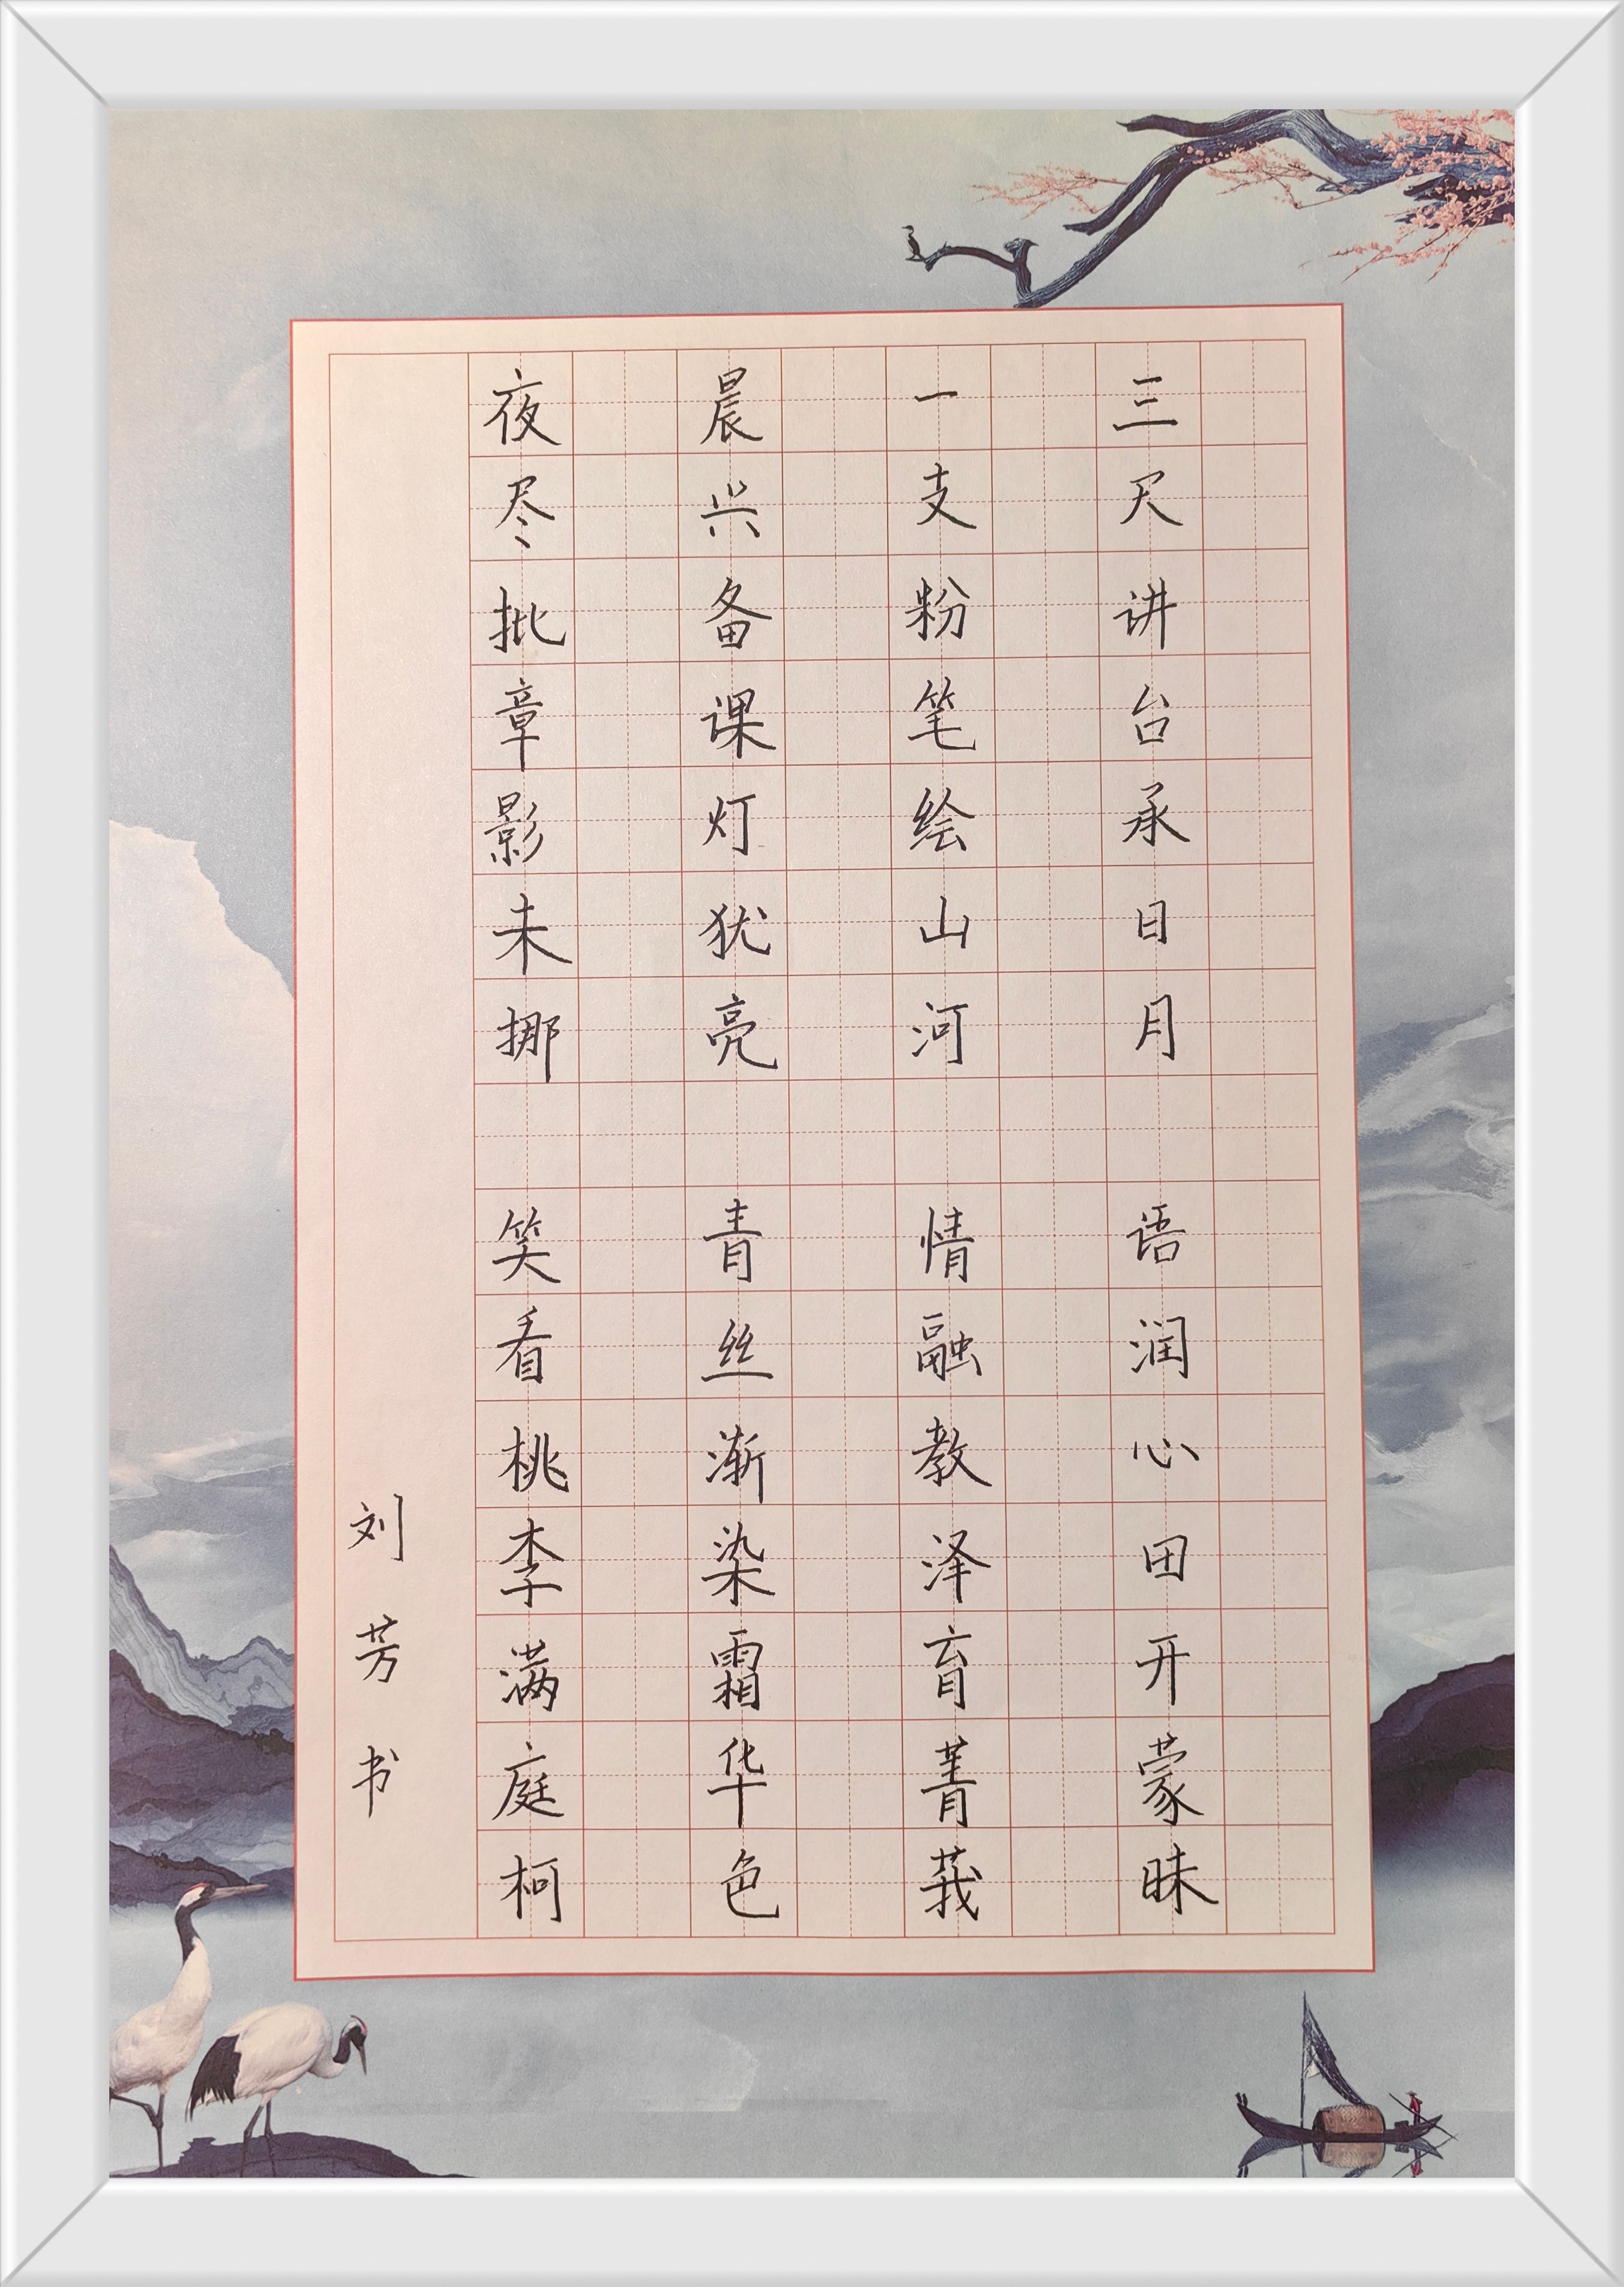 三尺讲台承日月 语润心田开蒙昧
一支粉笔绘山河 情融教泽育菁莪
晨兴备课灯犹亮 青丝渐染霜华色
夜尽批章影未挪 笑看桃李满庭柯
刘芳书